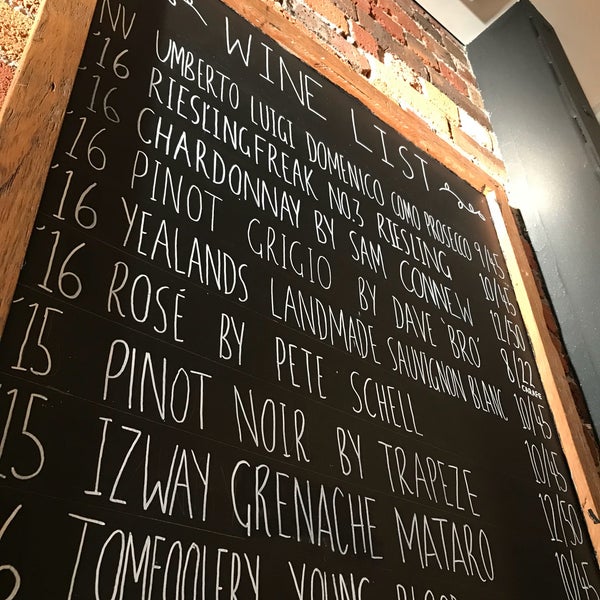 WINE LIST
NV UMBERTO LUIGI DOMENICO COMO PROSECCO 9/45
'16 RIESLINGFREAK NO.3 RIESLING 10/45
'16 CHARDONNAY BY SAM CONNEW 12/50
'16 PINOT GRIGIO BY DAVE 'BRO' 8/22 CARAFE
'16 YEALANDS LANDMADE SAUVIGNON BLANC 10/45
'16 ROSÉ BY PETE SCHELL 10/45
'15 PINOT NOIR BY TRAPEZE 12/50
'15 IZWAY GRENACHE MATARO 10/45
TOMFOOLERY YOUNG BLOOD